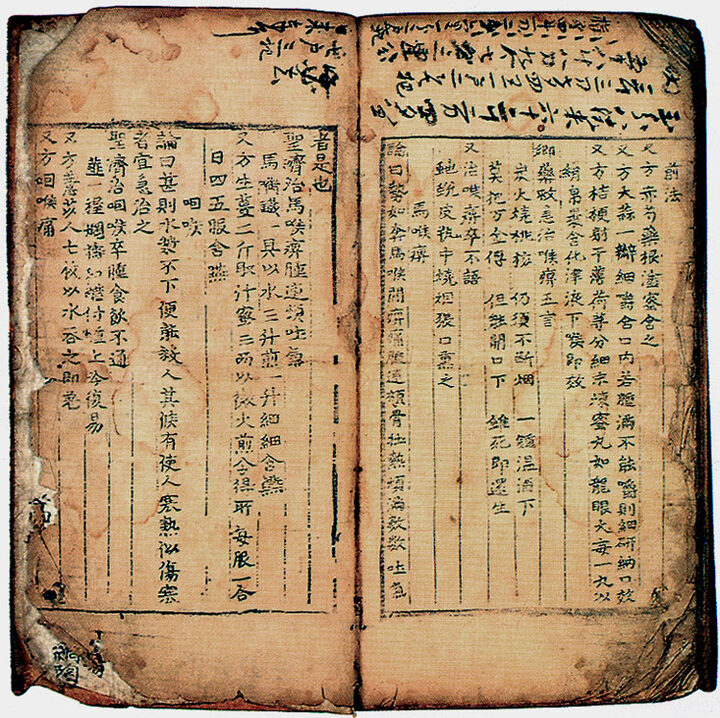 前法
又方赤芍藥根漬蜜含之
又方大蒜一瓣細嚼含口內若腫滿不能嚼則細研納口效
又方桔梗射干薄荷等分細末煉蜜丸如龍眼大每一丸以
綿帛裹含化津液下喉即效
鄉藥救急治喉痹五言
炭火燒桃核 仍須不斷烟 一鍾温酒下
莫把方全傳 但能開口下 雖死即還生
又治喉痹卒不語
蛇蛻皮瓶中燒烟張口熏之
馬喉痹
論曰勢如奔馬喉間痹腫連頰骨壮熱煩滿數數吐氣
者是也
聖濟治馬喉痹腫連頰吐氣
馬銜鐵一具以水三升煎一升細細含嚥
又方生薑二斤取汁蜜三兩以微火煎令得所每服一合
日四五服含嚥
咽喉
論曰甚則水漿不下便能殺人其候有使人寒熱似傷寒
者宜急治之
聖濟治咽喉卒腫食飲不通
薤一握爛擣和醋付腫上冷復易
又方薏苡人七枚以水呑之即差
又方咽喉痛